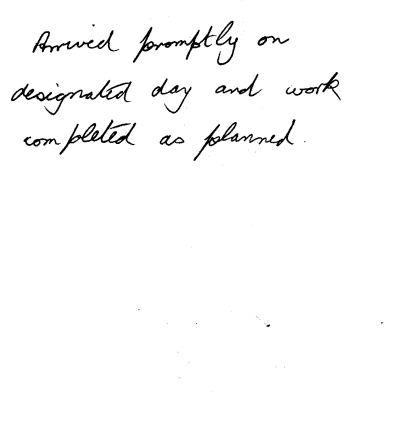 Arrived promptly on
designated day and work
completed as planned.